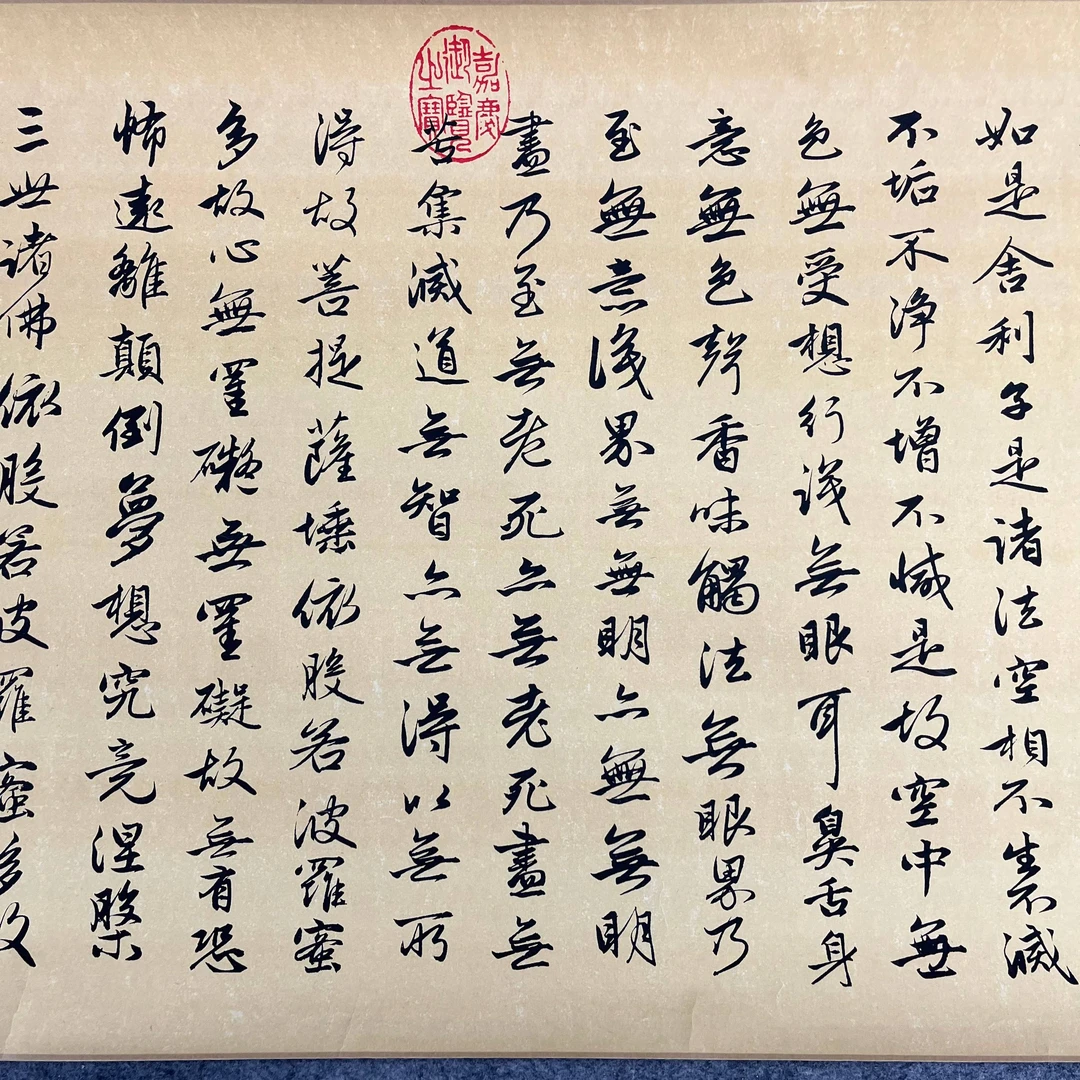 如是舍利子是諸法空相不生不滅
不垢不淨不增不減是故空中無
色無受想行識無眼耳鼻舌身
意無色聲香味觸法無眼界乃
至無意識界無無明亦無無明
盡乃至無老死亦無老死盡無
苦集滅道無智亦無得以無所
得故菩提薩埵依般若波羅蜜
多故心無罣礙無罣礙故無有恐
怖遠離顛倒夢想究竟涅槃
三世諸佛依般若波羅蜜多故
嘉慶御覽之寶